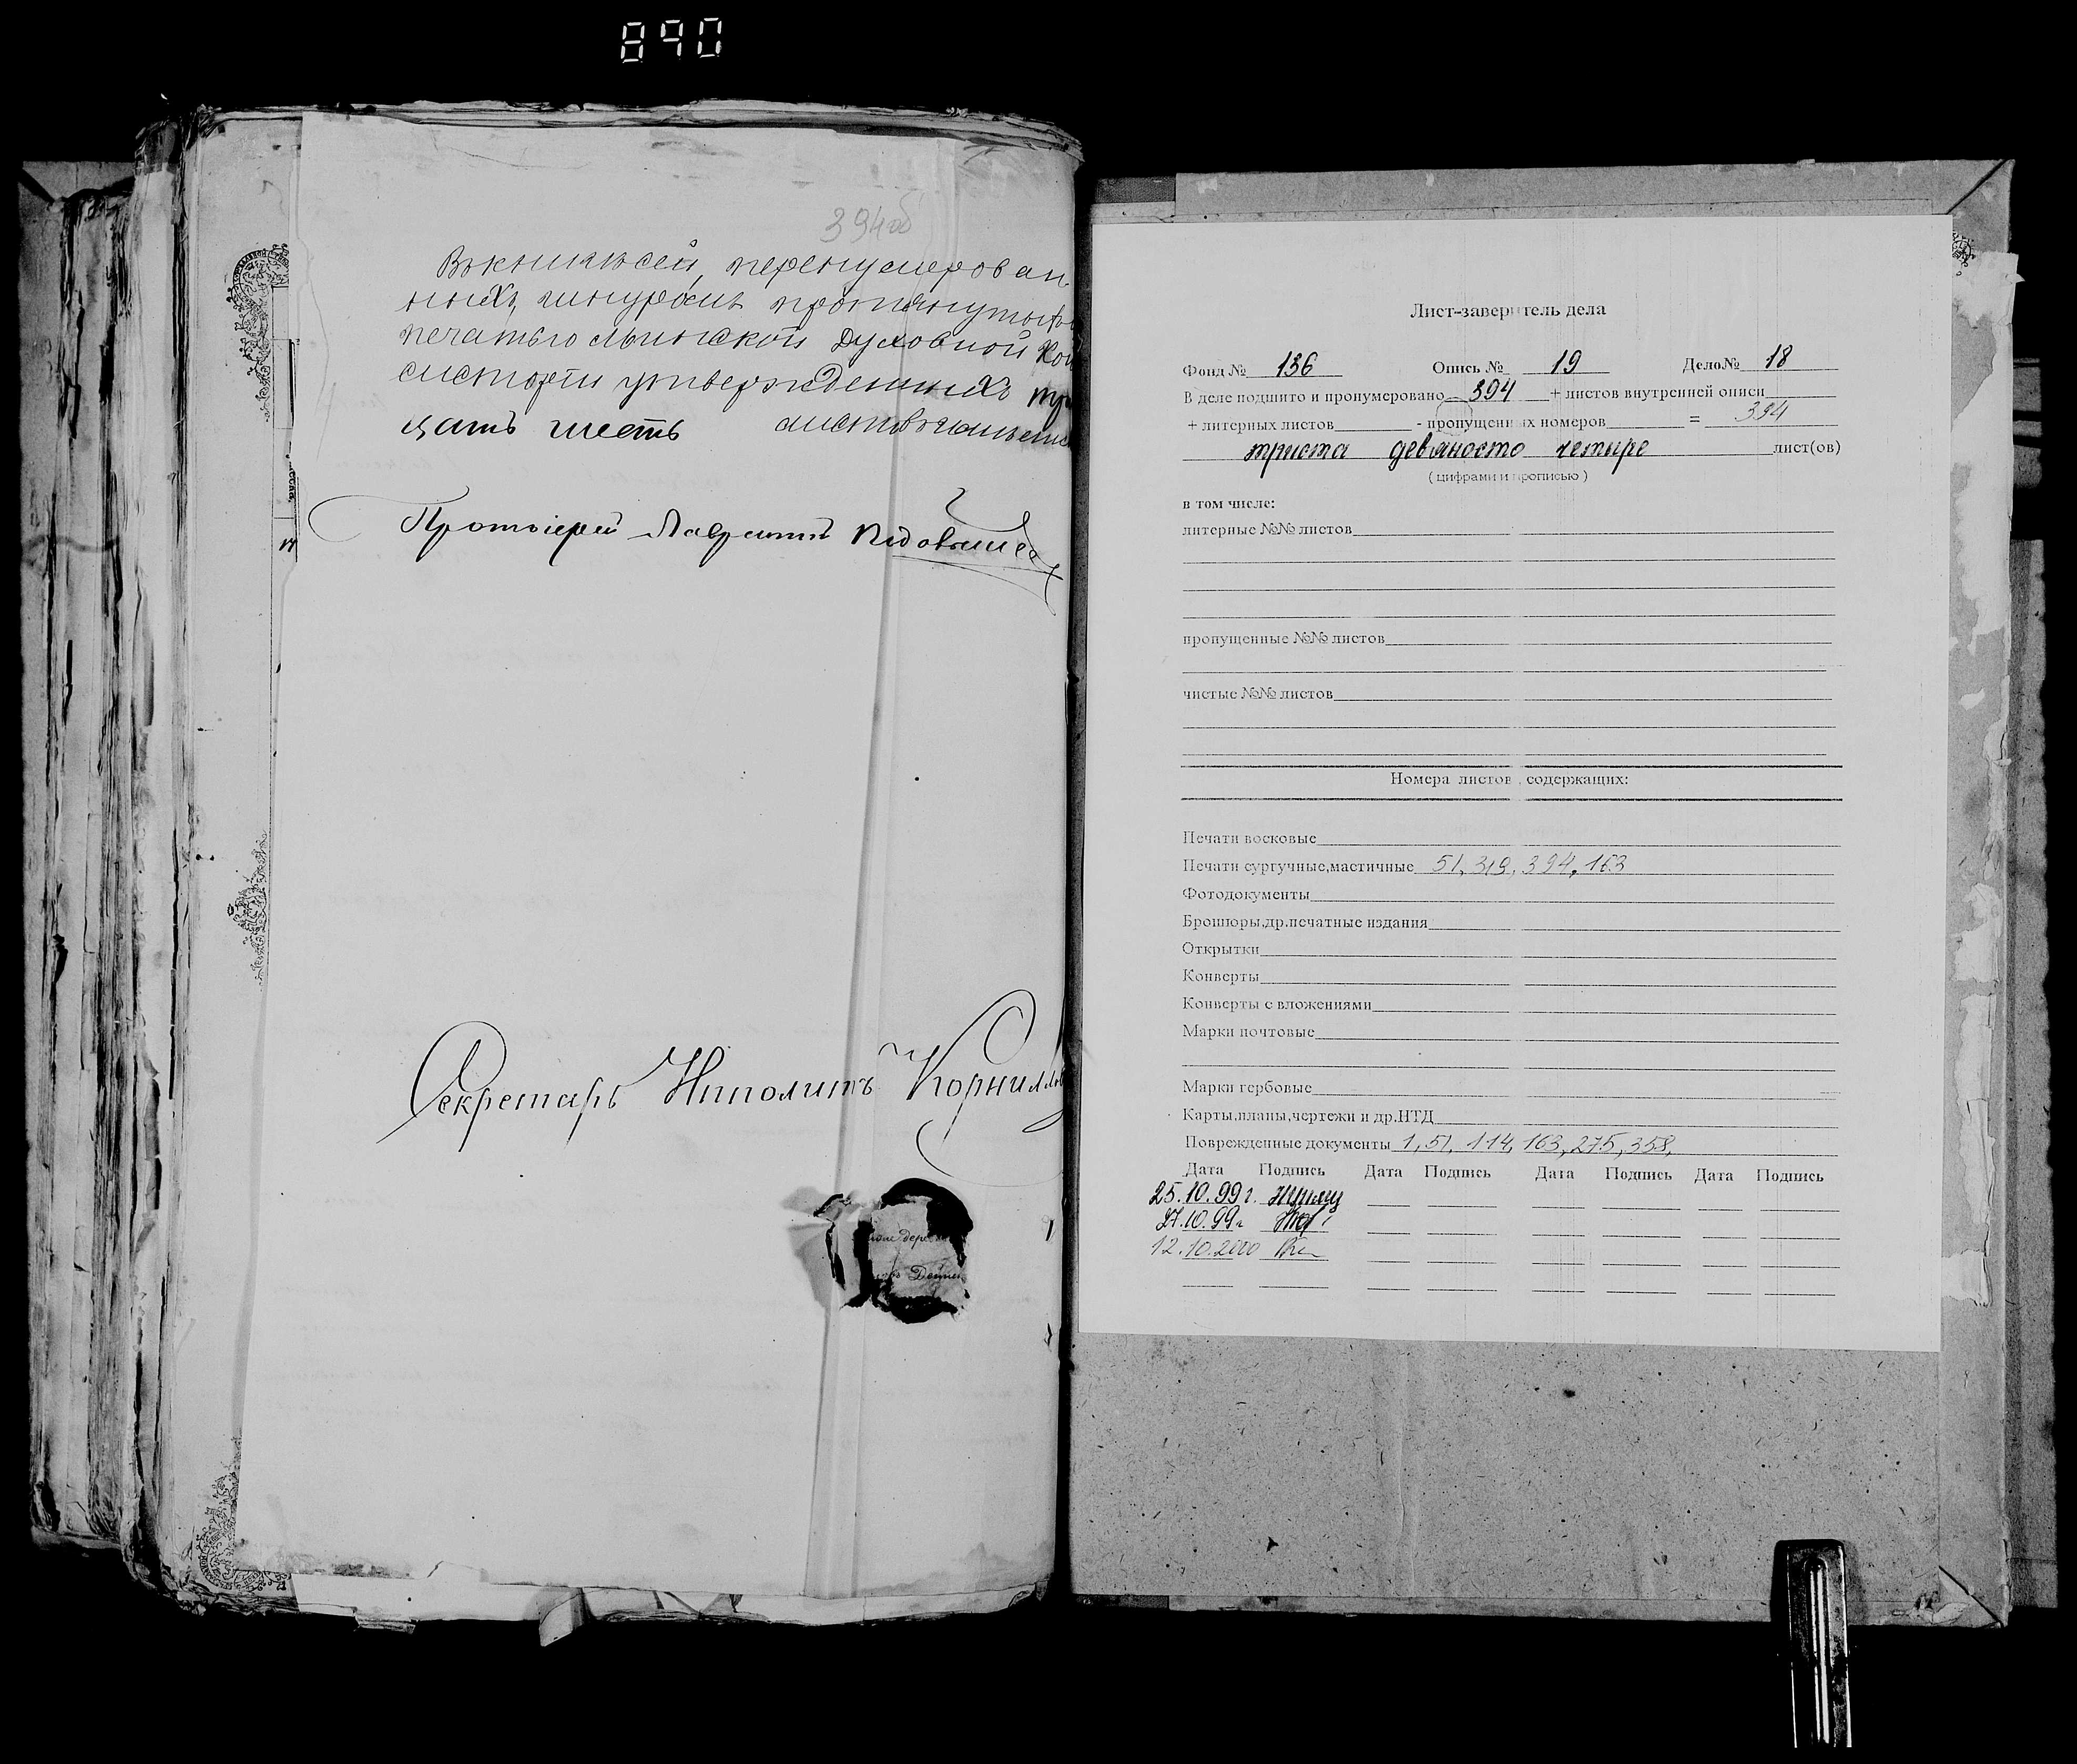 890
394об
Въ книгѣ сей, перенумерован
ныхъ, шнуромъ протянутыхъ
печатью Минской Духовной Кон
систоріи утвержденныхъ три
цать шесть листовъ
Протоіерей Лаврентій
Секретарь Ипполитъ Корнил
Лист-заверитель дела
Фонд № 136 Опись № 19 Дело№ 18
В деле подшито и пронумеровано 394 + листов внутренней описи
+ литерных листов - пропущенных номеров = 394
триста девяносто четыре лист(ов)
( цифрами и прописью )
в том числе:
литерные №№ листов
пропущенные №№ листов
чистые №№ листов
Номера листов , содержащих:
Печати восковые
Печати сургучные,мастичные 51, 319, 394, 163
Фотодокументы
Брошюры,др.печатные издания
Открытки
Конверты
Конверты с вложениями
Марки почтовые
Марки гербовые
Карты,планы,чертежи и др.НТД
Поврежденные документы 1, 51, 114, 163, 275, 358,
Дата Подпись Дата Подпись Дата Подпись Дата Подпись
25.10.99г.
27.10.99г
12.10.2000